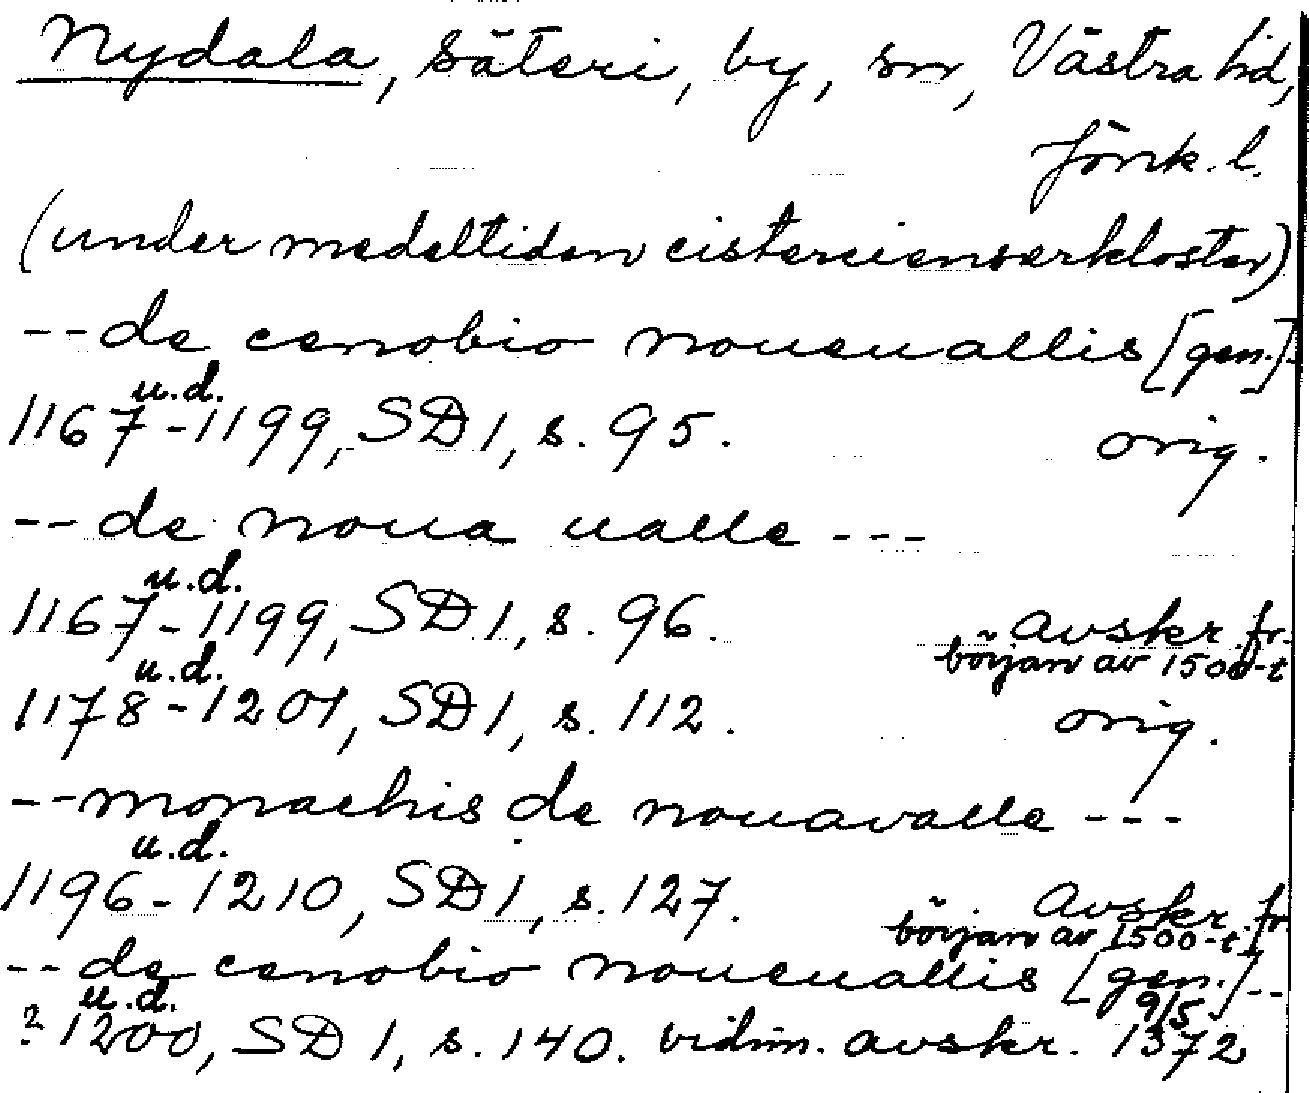 Nydala, säteri, by, sn, Västra hd,
Jönk. l.
(under medeltiden cistercienserkloster)
--de cenobio noueuallis [gen.]-
u.d.
1167-1199, SD 1, s. 95. orig.
--de noua ualle ---
u.d.
1167-1199, SD 1, s. 96. avskr. fr.
början av 1500-t
u.d.
1178-1201, SD 1, s. 112. orig.
--monachis de nouavalle ---
u.d.
1196-1210, SD 1, s. 127. Avskr. fr
början av 1500-t
--de cenobio noueuallis [gen.]--
u.d. 9/5
? 1200, SD 1, s. 140. vidim. avskr. 1372